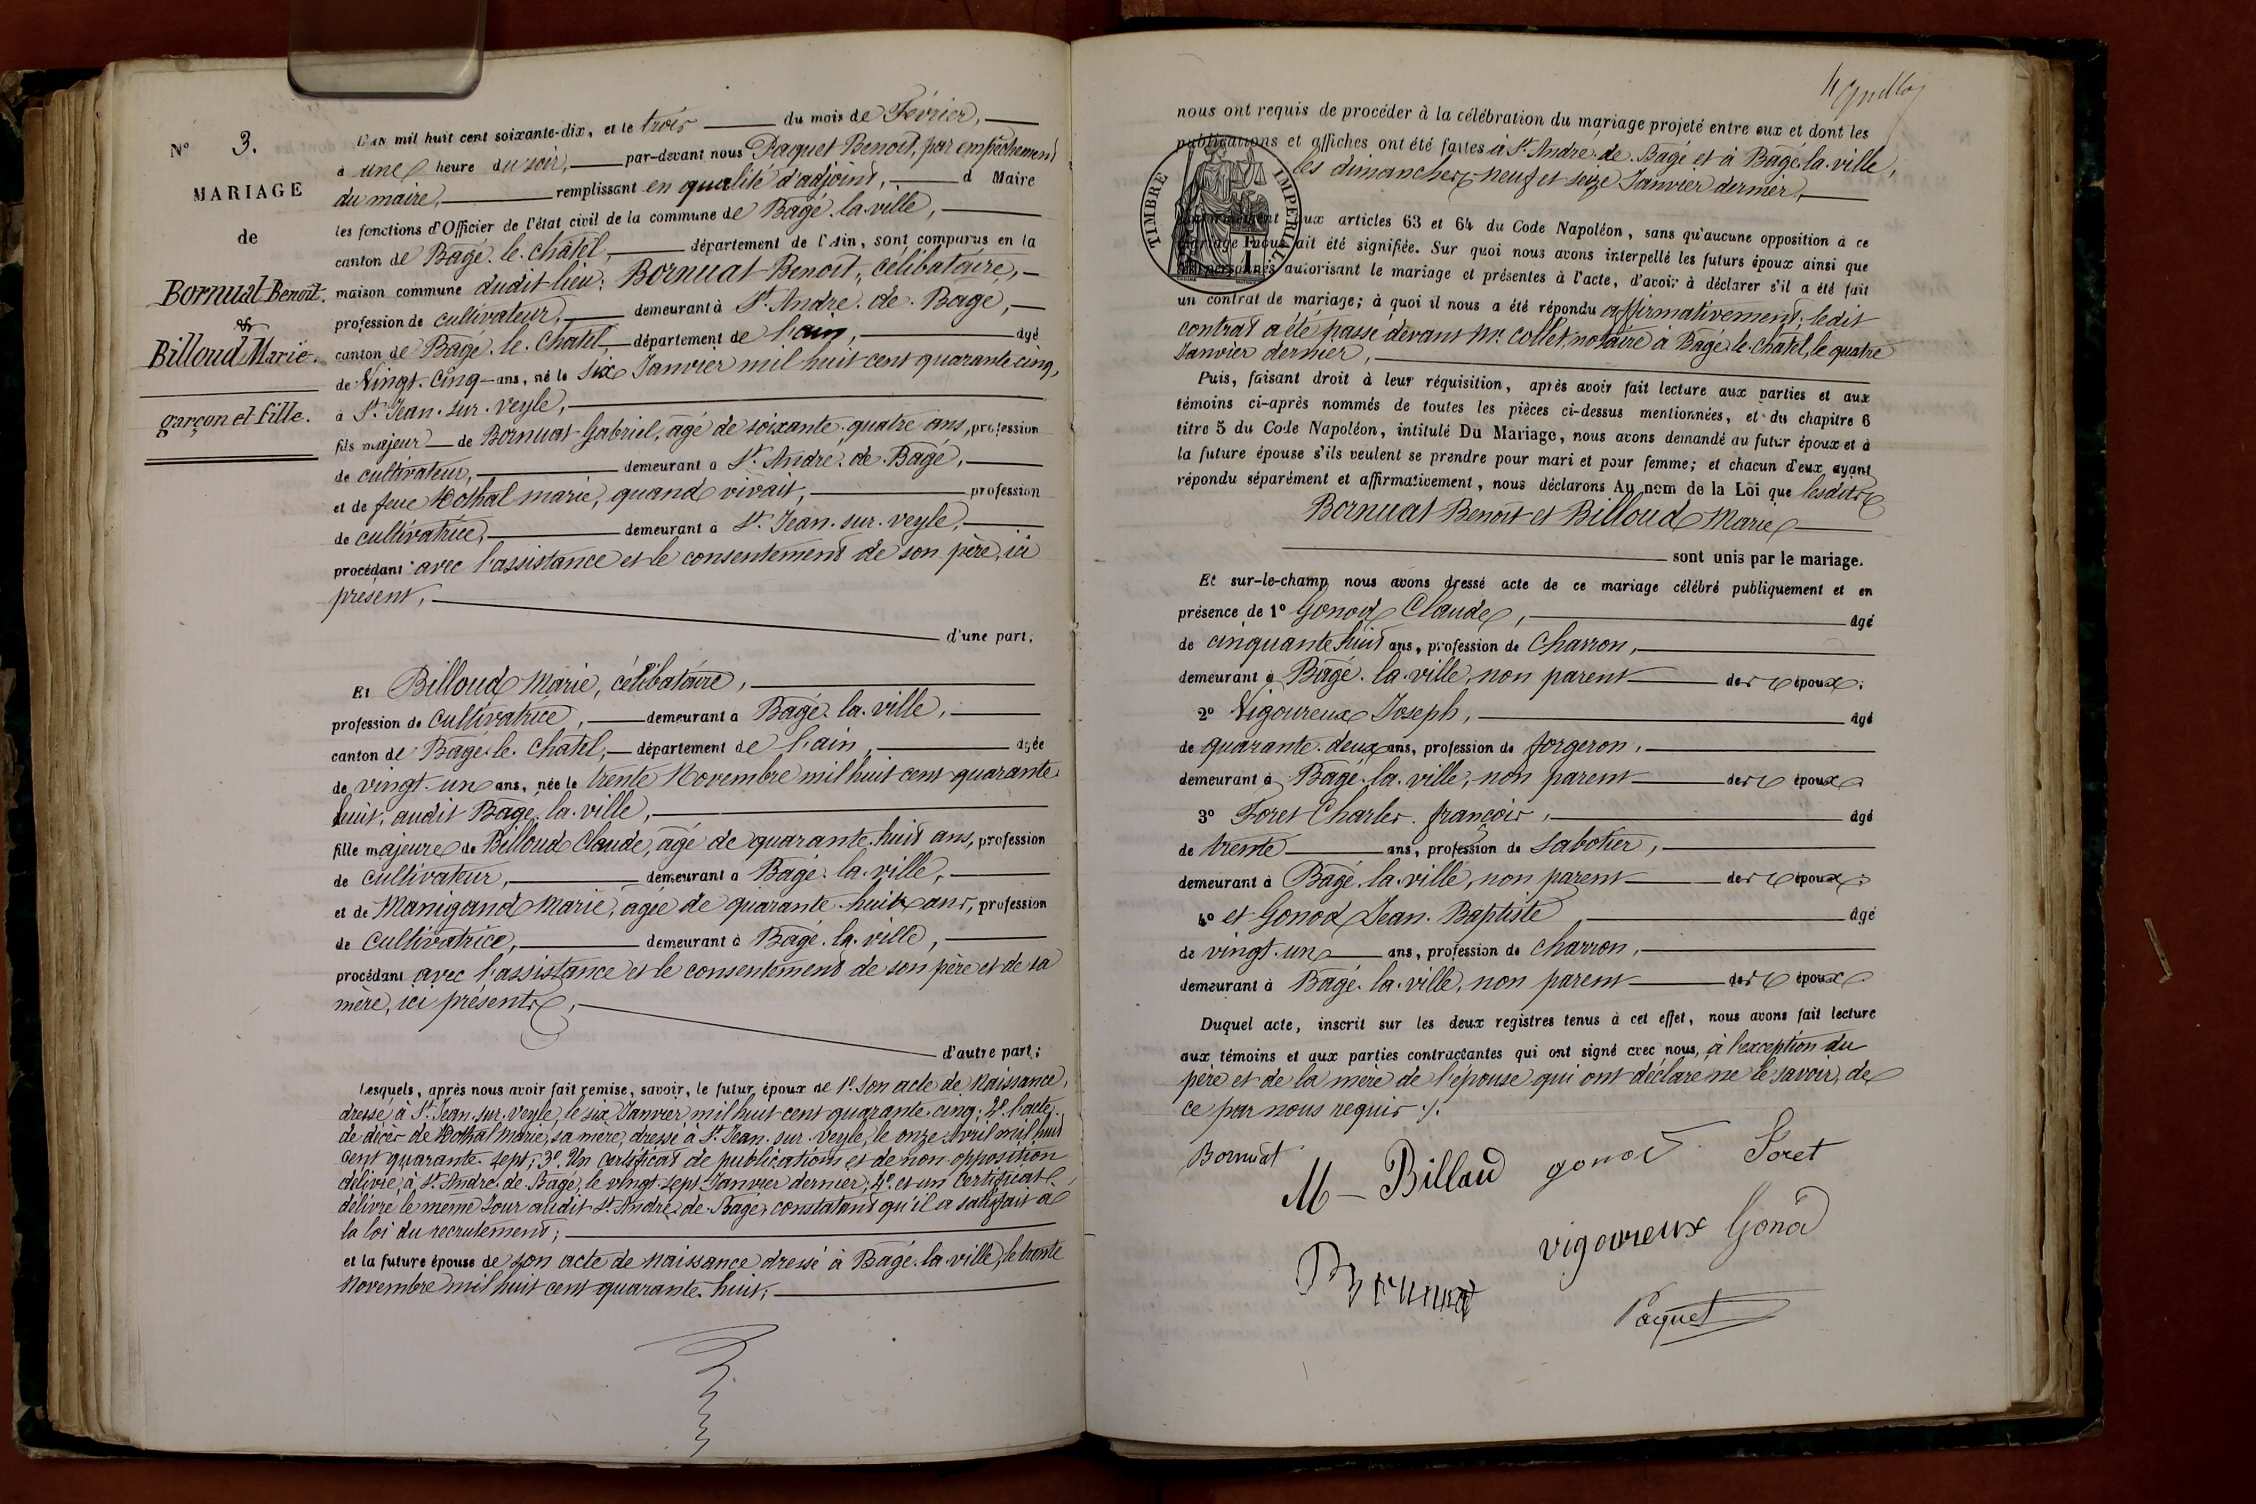 N° 3.
MARIAGE
de
Bornuat Benoît.
&
Billoud Marie.
garçon et fille.
L'AN mil huit cent soixante-dix, et le trois du mois de Février,
à une heure du soir, par-devant nous Paquet Benoît, par empêchement
du maire, remplissant en qualité d'adjoint, d Maire
les fonctions d'Officier de l'état civil de la commune de Bâgé-la-ville,
canton de Bâgé-le-Châtel, département de l'Ain, sont comparus en la
maison commune dudit lieu: Bornuat Benoît, célibataire,
profession de cultivateur, demeurant à St André-de-Bâgé,
canton de Bâgé-le-Châtel département de l'ain, âgé
de Vingt-Cinq ans, né le Six Janvier mil huit cent quarante-cinq,
à St Jean-sur-veyle,
fils majeur de Bornuat Gabriel, âgé de soixante-quatre ans, profession
de cultivateur, demeurant à St André-de-Bâgé,
et de feue Dothal marie, quand vivait, profession
de cultivatrice, demeurant à St Jean-sur-veyle,
procédant avec l'assistance et le consentement de son père, ici
présent,
d'une part;
Et Billoud Marie, célibataire,
profession de cultivatrice, demeurant à Bâgé-la-ville,
canton de Bâgé-le-Châtel, département de l'ain, âgée
de vingt-un ans, née le trente Novembre mil huit cent quarante-
huit, audit Bâgé-la-ville,
fille majeure de Billoud Claude, âgé de quarante-huit ans, profession
de cultivateur, demeurant à Bâgé-la-ville,
et de Manigand Marie, âgée de quarante-huit ans, profession
de cultivatrice, demeurant à Bâgé-la-ville,
procédant avec l'assistance et le consentement de son père et de sa
mère, ici présents,
d'autre part;
Lesquels, après nous avoir fait remise, savoir, le futur époux de 1° Son acte de Naissance,
dressé à St Jean-sur-Veyle, le six Janvier mil huit cent quarante-cinq; 2° l'acte
de décès de Dothal Marie, sa mère, dressé à St Jean-sur-veyle, le onze Avril mil huit
cent quarante-sept; 3° Un certificat de publications et de non-opposition
délivré, à St André-de-Bâgé, le vingt-sept Janvier dernier; 4° et un Certificat
délivré le même Jour audit St André-de-Bâgé, constatant qu'il a satisfait à
la loi du recrutement;
et la future épouse de son acte de naissance dressé à Bâgé-la-ville, le trente
Novembre mil huit cent quarante-huit;
nous ont requis de procéder à la célébration du mariage projeté entre eux et dont les
publications et affiches ont été faites à St André-de-Bâgé et à Bâgé-la-ville,
les dimanches neuf et seize Janvier dernier,
TIMBRE IMPERIAL
conformément aux articles 63 et 64 du Code Napoléon, sans qu'aucune opposition à ce
mariage nous ait été signifiée. Sur quoi nous avons interpellé les futurs époux ainsi que
les personnes autorisant le mariage et présentes à l'acte, d'avoir à déclarer s'il a été fait
un contrat de mariage; à quoi il nous a été répondu affirmativement; ledit
contrat a été passé devant Me Collet, notaire à Bâgé-le-châtel, le quatre
Janvier dernier,
Puis, faisant droit à leur réquisition, après avoir fait lecture aux parties et aux
témoins ci-après nommés de toutes les pièces ci-dessus mentionnées, et du chapitre 6
titre 5 du Code Napoléon, intitulé Du Mariage, nous avons demandé au futur époux et à
la future épouse s'ils veulent se prendre pour mari et pour femme; et chacun d'eux ayant
répondu séparément et affirmativement, nous déclarons Au nom de la Loi que lesdits
Bornuat Benoît et Billoud Marie
sont unis par le mariage.
Et sur-le-champ nous avons dressé acte de ce mariage célébré publiquement et en
présence de 1° Gonod Claude, âgé
de cinquante-huit ans, profession de charron,
demeurant à Bâgé-la-ville, non parent des époux;
2° Vigoureux Joseph, âgé
de quarante-deux ans, profession de forgeron,
demeurant à Bâgé-la-ville, non parent des époux
3° Foret Charles-françois, âgé
de trente ans, profession de Sabotier,
demeurant à Bâgé-la-ville, non parent des époux;
4° et Gonod Jean-Baptiste âgé
de vingt-un ans, profession de charron,
demeurant à Bâgé-la-ville, non parent des époux
Duquel acte, inscrit sur les deux registres tenus à cet effet, nous avons fait lecture
aux témoins et aux parties contractantes qui ont signé avec nous, à l'exception du
père et de la mère de l'épouse qui ont déclaré ne le savoir, de
ce par nous requis ./.
Bornuat M Billoud gonod Foret
vigoureux Gonod
Bornuat
Paquet